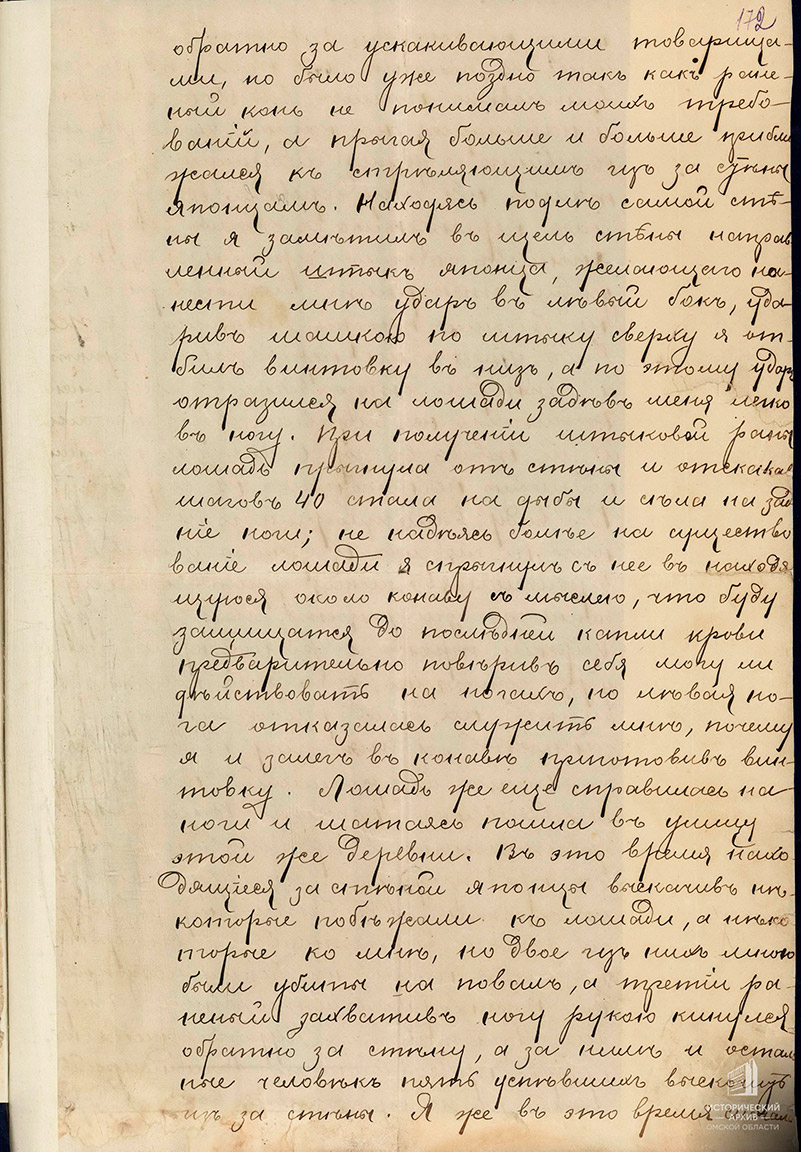 172
обратно за ускакивающими товарища-
ми, но было уже поздно такъ какъ ране-
ный конь не понималъ моихъ требо-
ваній, а прыгая больше и больше прибли
жался къ стрѣляющимъ изъ за стѣны
японцамъ. Находясь подлѣ самой стѣ-
ны я замѣтилъ въ щель стѣны направ
ленный штыкъ японца, желающаго на-
нести мнѣ ударъ въ лѣвый бокъ, уда-
ривъ шашкою по штыку сверху я от-
билъ винтовку въ низъ, а по этому ударъ
отразился на лошади задѣвъ меня легко
въ ногу. При полученіи штыковой раны
лошадь прыгнула отъ стѣны и отскакав
шаговъ 40 стала на дыбы и сѣла на зад
ніе ноги; не надѣясь болѣе на существо
ваніе лошади я спрыгнулъ съ нее въ находя
щуюся около конаву съ мыслею, что буду
защищатся до послѣдней капли крови
предварительно повѣривъ себя могу ли
дѣйствовать на ногахъ, но лѣвая но-
га отказалась служить мнѣ, почему
я и залегъ въ конавѣ приготовивъ вин-
товку. Лошадь же еще справилась на
ноги и шатаясь пошла въ улицу
этой же деревни. Въ это время нахо-
дящіеся за стѣной японцы выскачивъ нѣ-
которые побѣжали къ лошади, а нѣко
торые ко мнѣ, но двое изъ нихъ мною
были убиты на повалъ, а третій ра-
неный захвативъ ногу рукою кинулся
обратно за стѣну, а за нимъ и осталь
ные человѣкъ пять успѣвшихъ выскочить
изъ за стѣны. Я же въ это время
ИСТОРИЧЕСКИЙ
АРХИВ
ОМСКОЙ ОБЛАСТИ